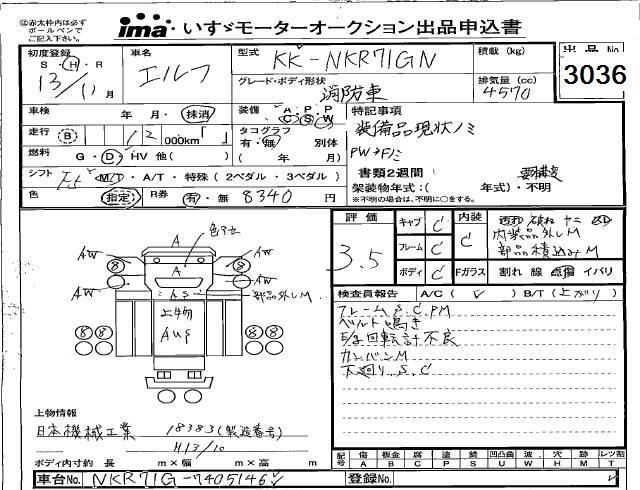 ㊟赤太枠内は必ずボールペンでご記入ください。
ima いすゞモーターオークション出品申込書
初度登録 S・H・R 13/11月
車名 エルフ
型式 KK-NKR71GN
積載 (kg)
出品No 3036
グレード・ボディ形状 消防車
排気量 (cc) 4570
車検 年・月・抹消
装備 A・P・P C・S・W
特記事項
装備品現状ノミ
走行 B 12 000km「 」
タコグラフ 有・無 別体 ( 年 月)
燃料 G・D・HV 他( )
書類2週間
シフト F5 M/T・A/T・特殊 (2ペダル・3ペダル)
架装物年式:( 年式)・不明
※不明の場合は、不明に○をする。
色 指定 R券 有・無 8340 円
評価 3.5
キャブ C
フレーム C
ボディ C
内装 C
内装品外しM
部品積込みM
Fガラス 割れ 線 点傷 イバリ
検査員報告 A/C( ✓ ) B/T(上がり)
フレームS.C.PM
ベルト鳴き
E/g回転計不良
カンバンM
下廻りS.C
A
AW
AW
AW
A
AS
部品外しM
上物
AUS
8
8
8
8
8
8
上物情報
日本機械工業 18383(製造番号)
H13/10
ボディ内寸約 長 m×幅 m×高 m
記号 傷A 板金B 腐C 塗P 錆S 凹凸曲U 波W 穴H 目M レツ割T
車台No. NKR71G-7405146
登録No.